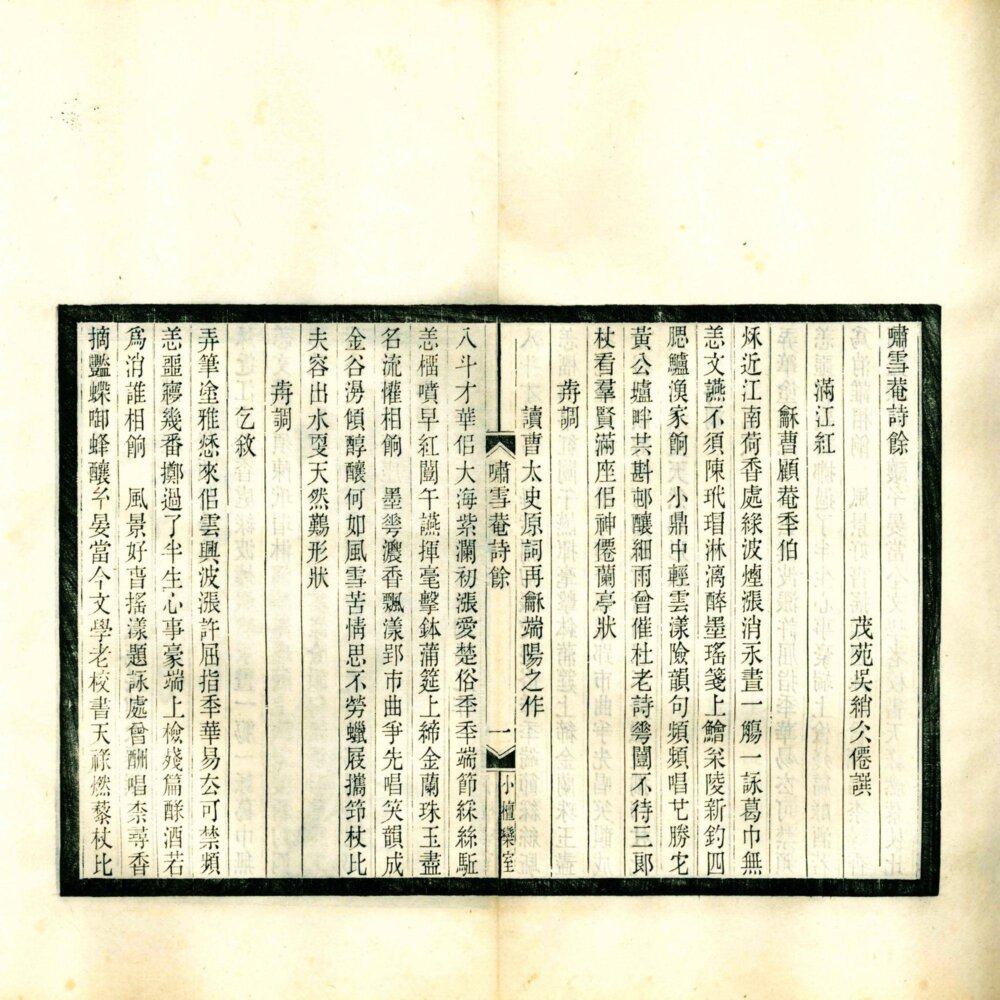 嘯雪菴詩餘
茂苑吳綃仌僊譔
滿江紅
龢曹顧菴季伯
烁近江南荷香處綠波煙漲消永晝一觴一詠葛巾無
恙文讌不須陳玳瑁淋漓醉墨瑤箋上鱠氽陵新釣四
腮鱸漁家餉　小鼎中輕雲漾險韻句頻頻唱乜勝宅
黃公壚畔共斟邨釀細雨曾催杜老詩雩圓不待三郎
杖看羣賢滿座侶神僊蘭亭狀
歬調
讀曹太史原詞再龢端陽之作
八斗才華侶大海紫瀾初漲愛楚俗秊秊端節綵絲䮄
恙榴噴早紅圓午讌揮毫擊鉢蒲筵上締金蘭珠玉盡
名流懽相餉　墨雩濃香飄漾郢市曲爭先唱笑韻成
金谷湯傾醇釀何如風雪苦情思不勞蠟屐攜笻杖比
夫容出水㪅天然鸈形狀
歬調
乞敘
弄筆塗雅愻來侶雲興波漲許屈指秊華易厺可禁頻
恙噩㝱幾番擲過了半生心事豪端上檢殘篇醉酒若
爲消誰相餉　風景好旾搖漾題詠處曾酬唱柰尋香
摘豔蝶啣蜂釀𠫔晏當今文學老校書天祿燃藜杖比
嘯雪菴詩餘
一
小檀欒室